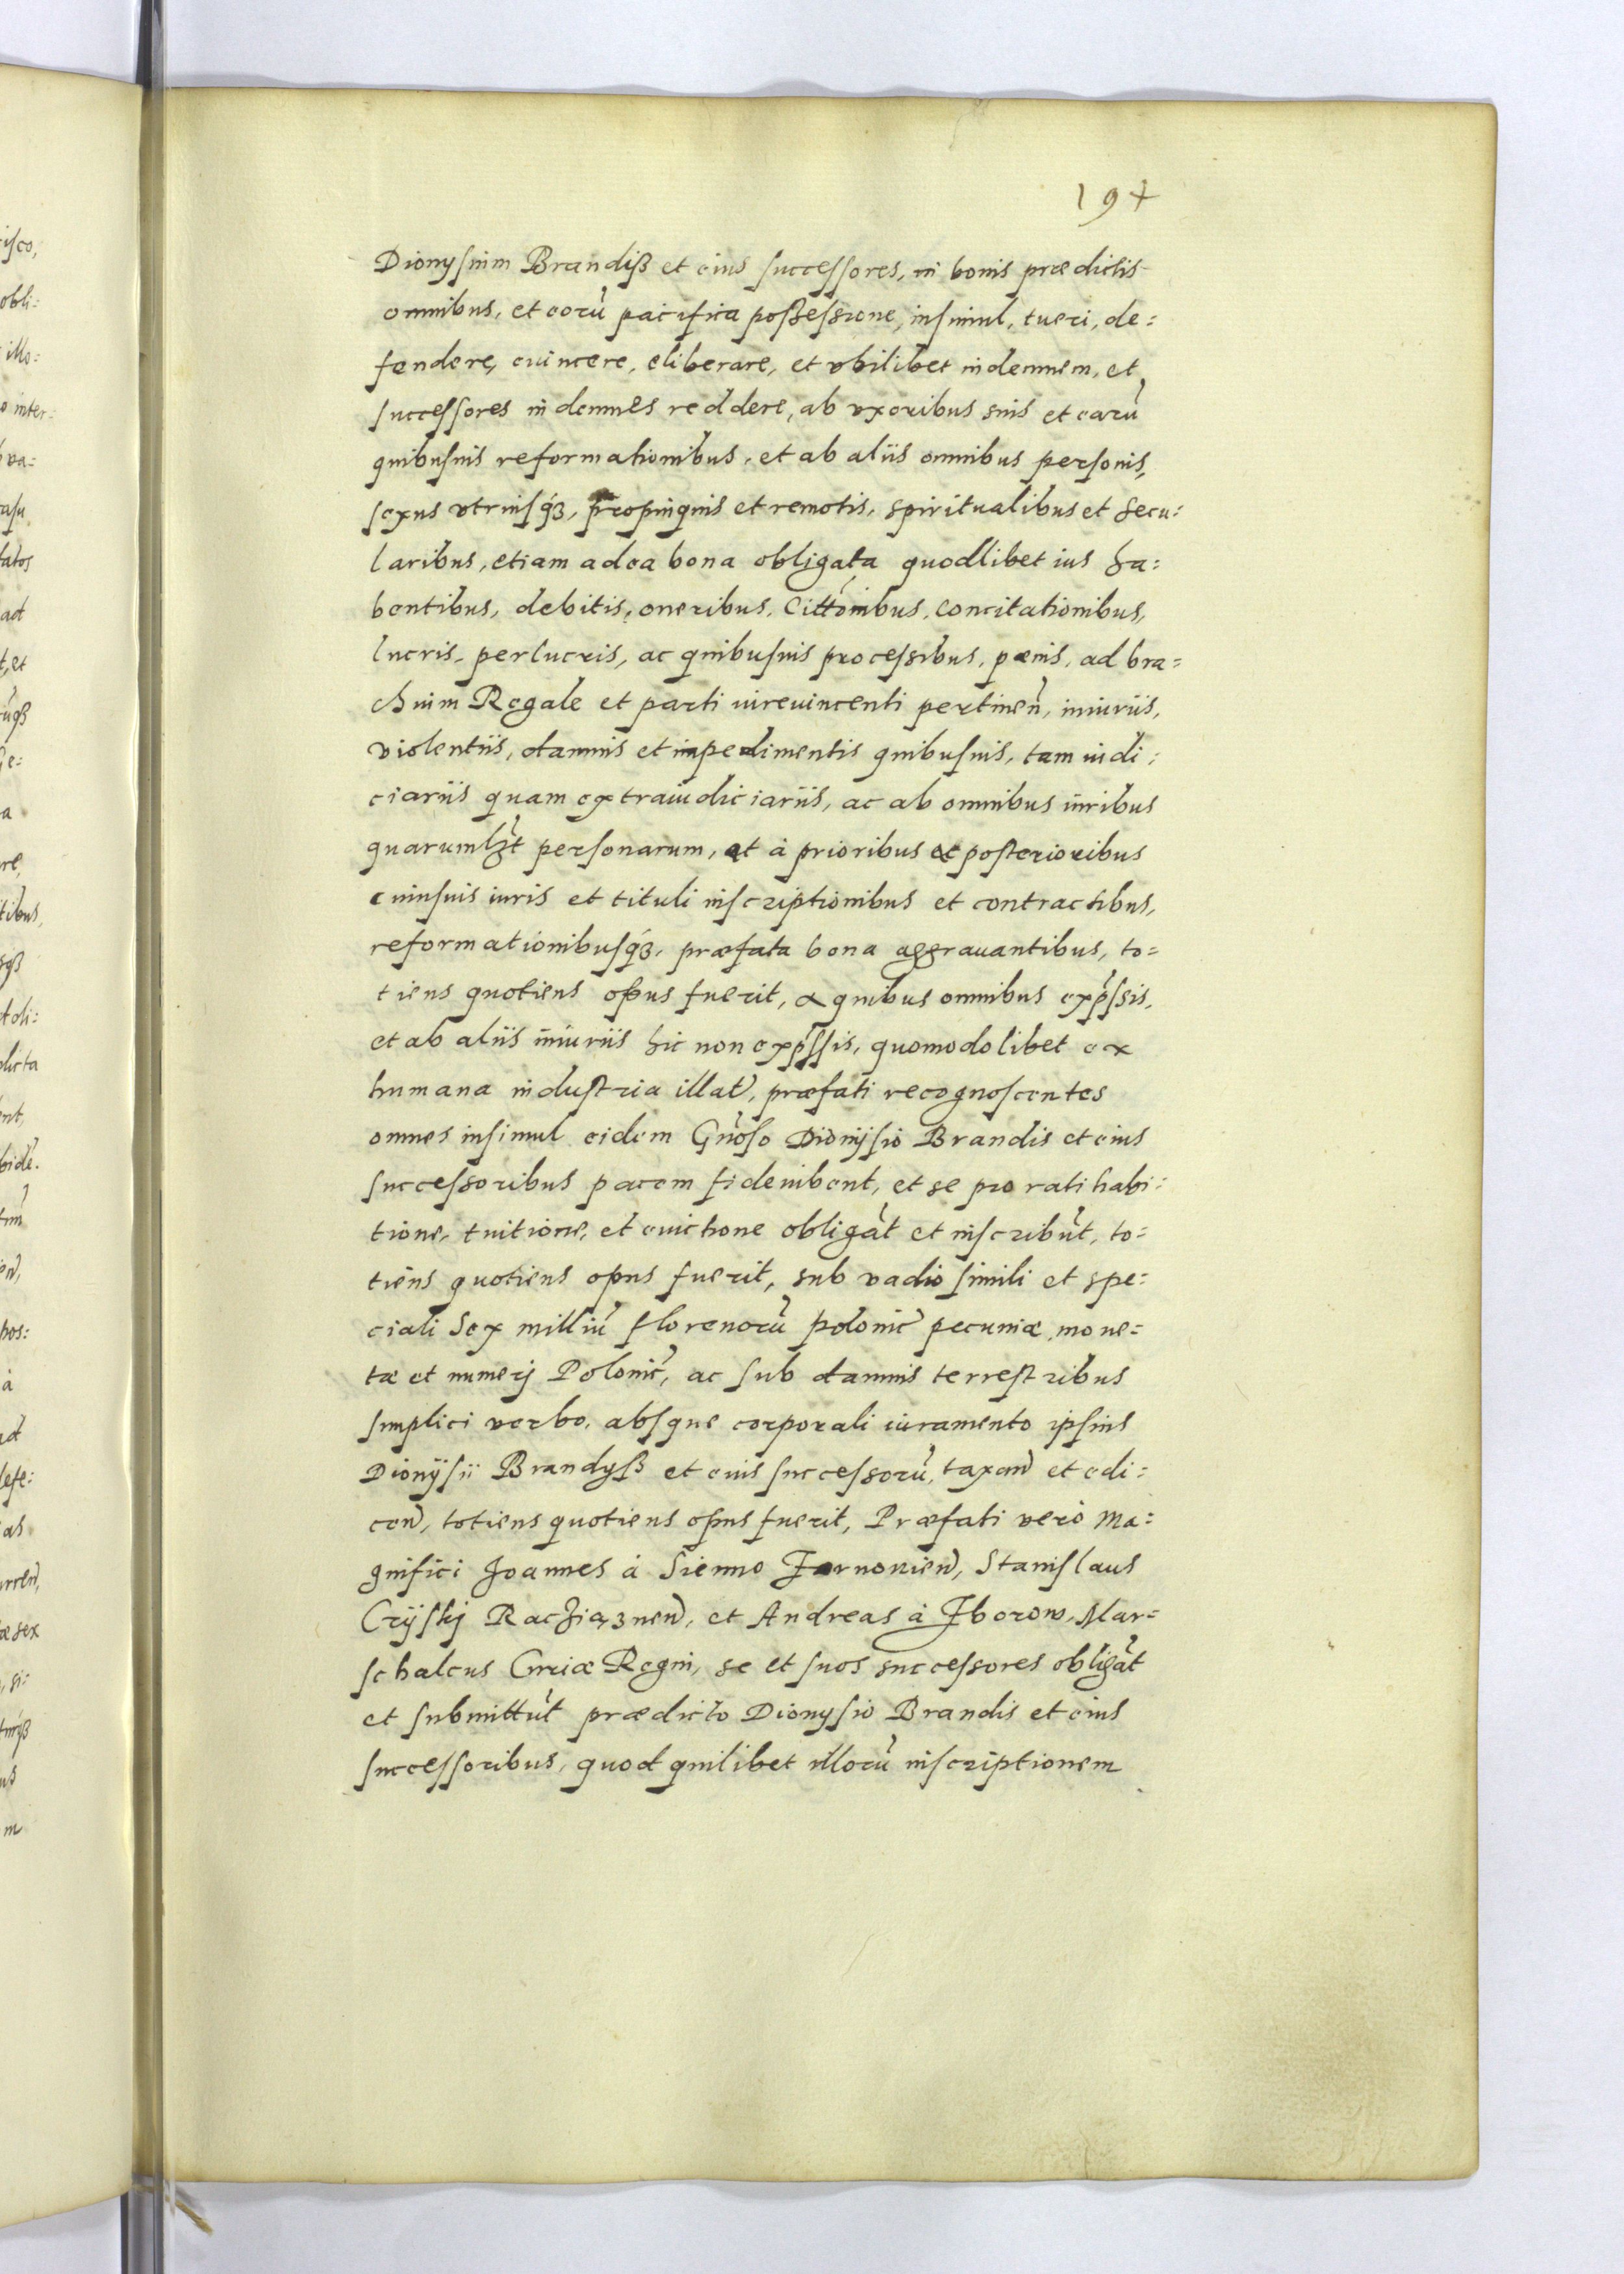 194
Dionysium Brandiß et eius successores, in bonis prædictis
omnibus, et eorũ pacifica possessione, insimul, tueri, de:
fendere, euincere, eliberare, et vbilibet indemnem, et
successores indemnes reddere, ab vxoribus suis et earũ
quibusuis reformationibus, et ab aliis omnibus personis,
sexus vtriusq́ȝ, propinquis et remotis, spiritualibus et secu:
laribus, etiam ad ea bona obligata quodlibet ius ha:
bentibus, debitis, oneribus, Cittõnibus, concitationibus,
lucris, perlucris, ac quibusuis processibus, pœnis, ad bra=
chium Regale et parti iureuincenti pertineñ, iniuriis,
violentiis, damnis et impedimentis quibusuis, tam iudi:
ciariis quam extraiudiciariis, ac ab omnibus iuribus
quarumlȝt personarum, et à prioribus et posterioribus
cuiusuis iuris et tituli inscriptionibus et contractibus,
reformationibusq́ȝ, præfata bona aggrauantibus, to=
tiens quotiens opus fuerit, a quibus omnibus exp̃ssis,
et ab aliis iniuriis hic non exp̃ssis, quomodolibet ex
humana industria illat̃, præfati recognoscentes
omnes insimul eidem Gñoso Dionijsio Brandis et eius
successoribus pacem fideiubent, et se pro ratihabi:
tione, tuitione, et euictione obligãt et inscribũt, to=
tiens quotiens opus fuerit, sub vadio simili et spe:
ciali Sex milliũ florenorũ polonic̃ pecuniæ, mone=
tæ et numerj Polonic̃, ac sub damnis terrestribus
simplici verbo, absque corporali iuramento ipsius
Dionijsii Brandyß et euis successorũ, taxañ et edi:
ceñ, totiens quotiens opus fuerit, Præfati verò Ma:
gnifici Joannes à Sienno Žarnowieñ, Stanislaus
Crijskj Raciążneñ, et Andreas à Zborow, Mar=
schalcus Curiæ Regni, se et suos successores obligãt
et submittũt prædicto Dionysio Brandis et eius
successoribus, quod quilibet illorũ inscriptionem